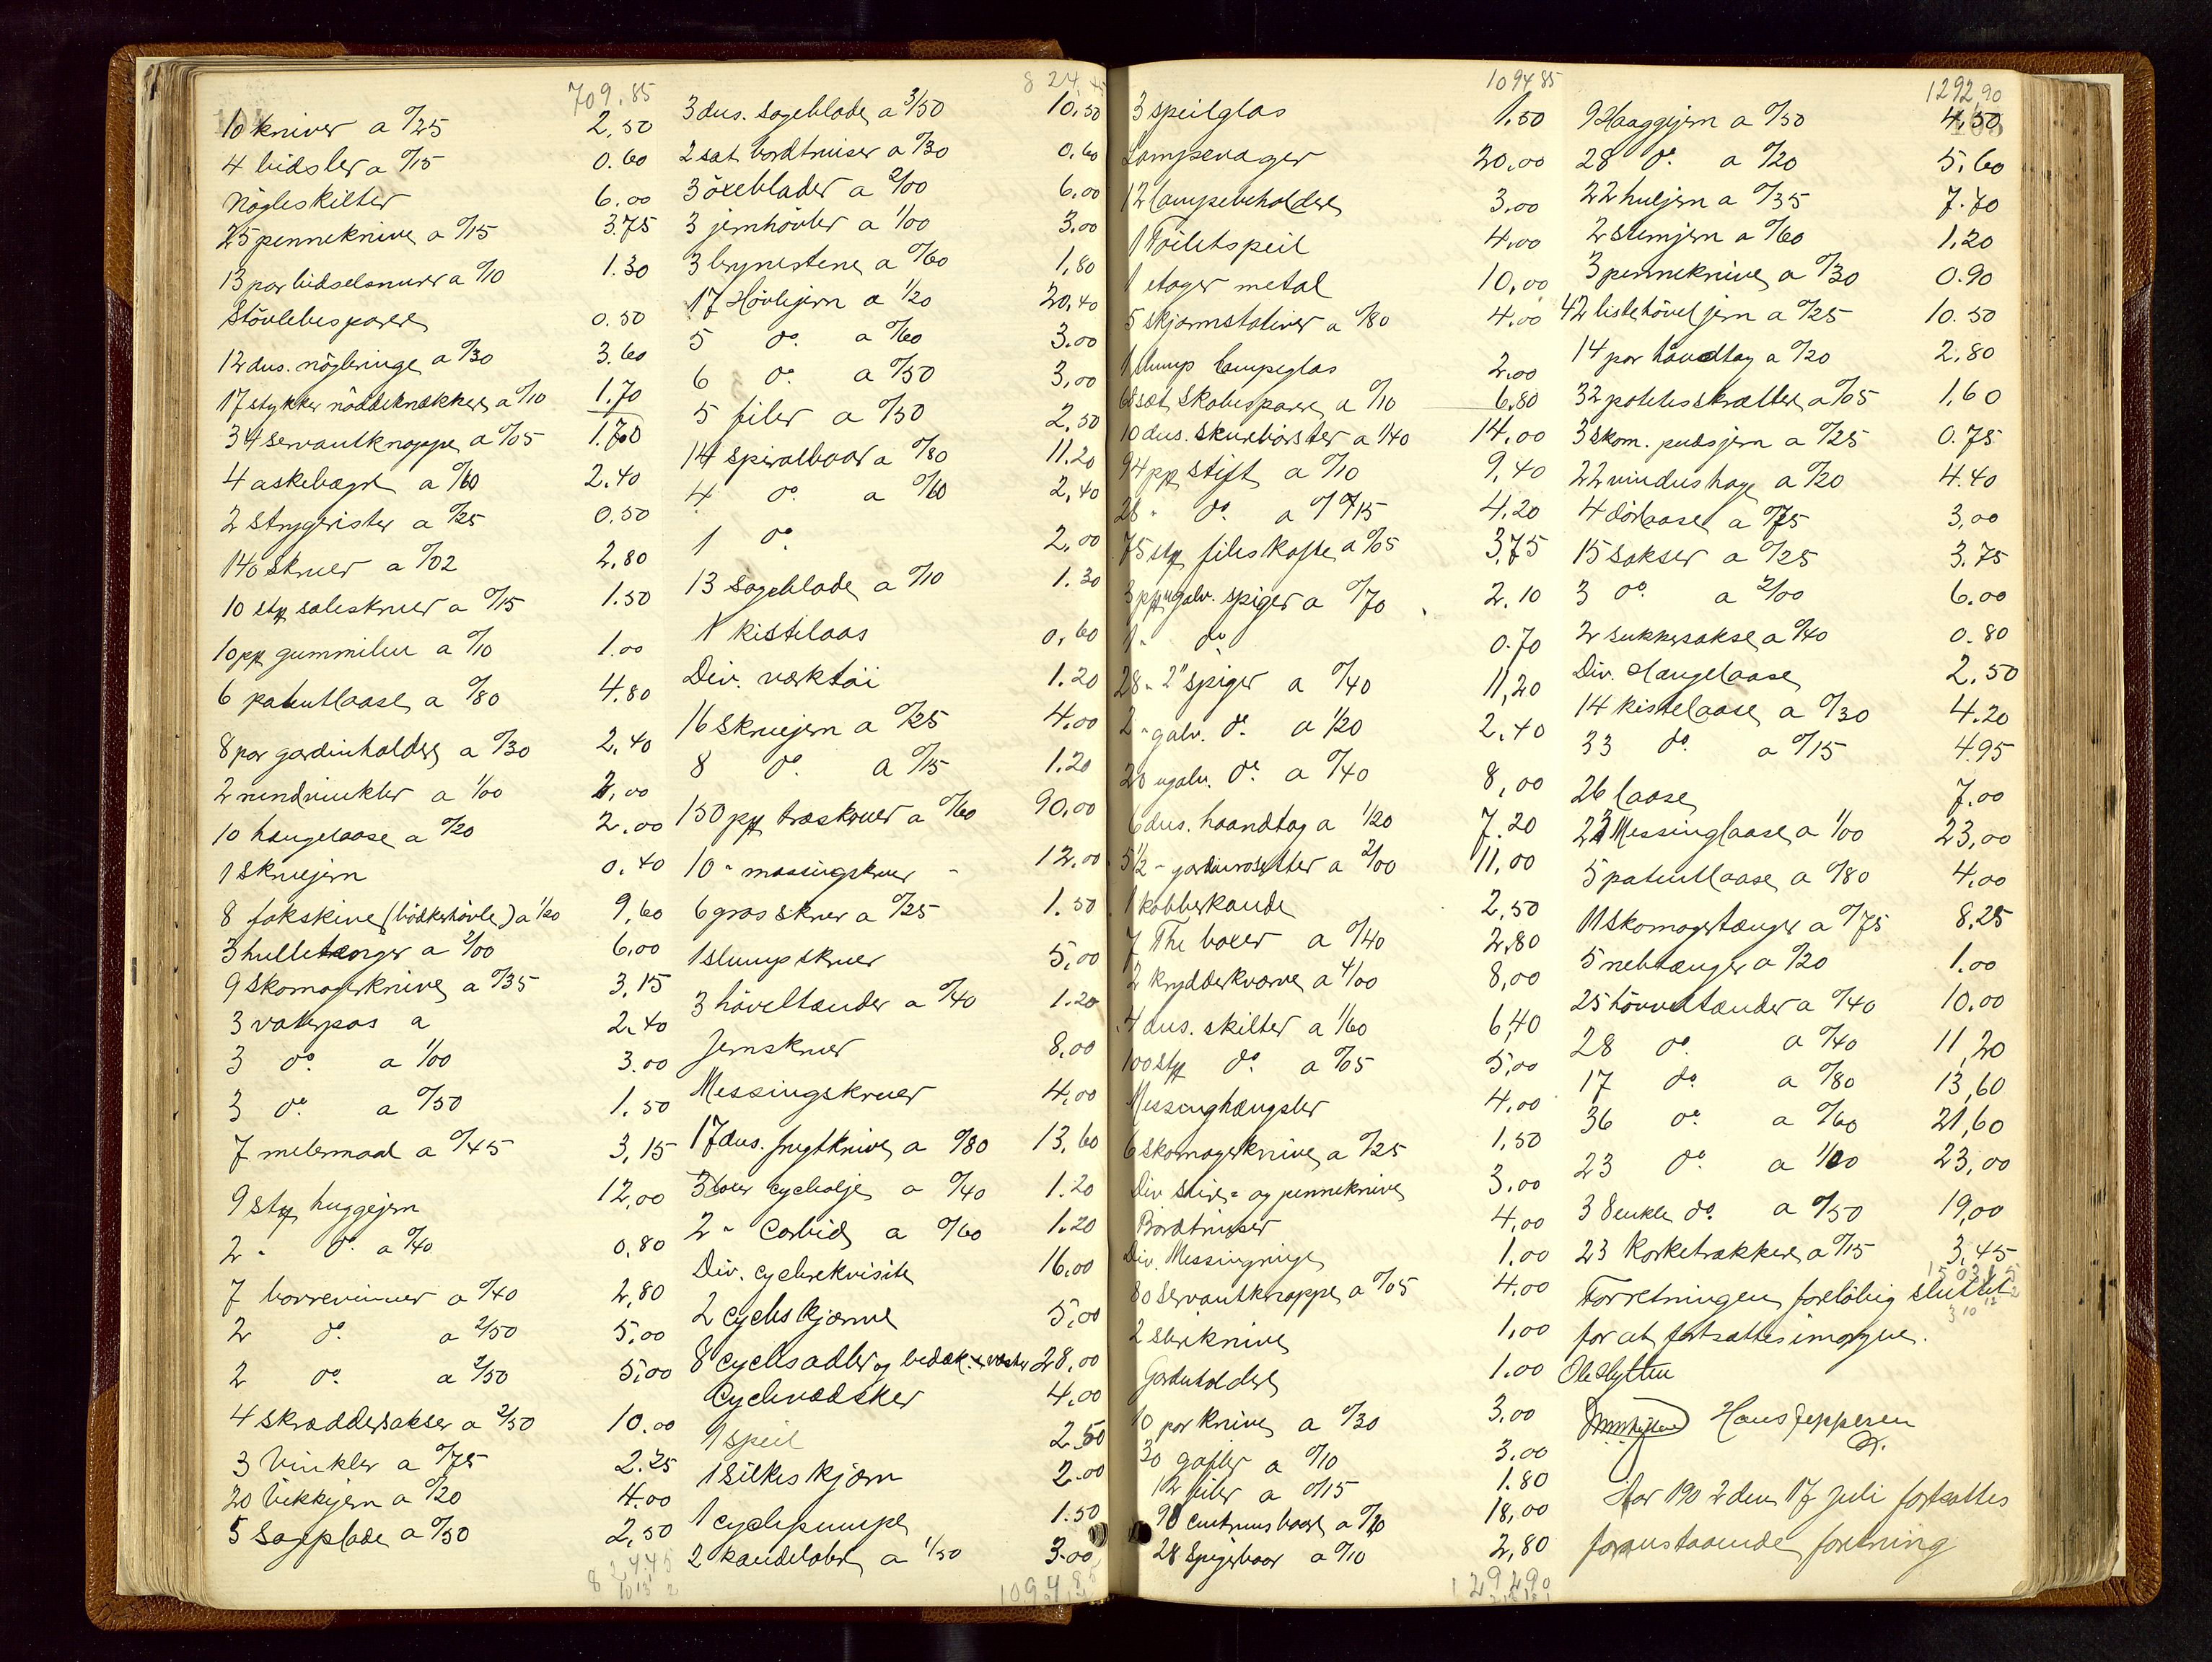 709.85
10 kniver a 0/25 2,50
4 bidsler a 0/15 0.60
Nögleskilter 6.00
25 penneknive a 0/15 3.75
13 par bidselsnurer a 0/10 1.30
Stövlebesparere 0.50
12 dus. nögleringe a 0/30 3.60
17 stykker nöddeknækkere a 0/10 1.70
34 servantknappe a 0/05 1.70
4 askebæger a 0/60 2.40
2 strygerister a 0/25 0.50
140 skruer a 0/02 2,80
10 stk saleskruer a 0/15 1.50
10 pk gummilim a 0/10 1.00
6 patentlaase a 0/80 4.80
8 par gardinholdere a 0/30 2,40
2 vinkler a 1/00 2,00
10 hængelaase a 0/20 2.00
1 Skruejern 0,40
8 fakskive (bödkerhövle) a 1/20 9,60
3 hulletænger a 2/00 6,00
9 Skomagerknive a 0/35 3,15
3 vaterpas a 2.40
3 do. a 1/00 3.00
3 do. a 0/50 1.50
7 metermaal a 0/45 3,15
9 stk huggejern 12,00
2 " do. a 0/40 0,80
7 borrevinner a 0/40 2,80
2 do. a 2/50 5,00
2 do. a 2/50 5,00
4 skræddersakser a 2/50 10.00
3 Vinkler a 0/75 2.25
20 Vikkjern a 0/20 4.00
5 Sagplade a 0/50 2,50
824,45
824,45
3 dus. sageblade a 3/50 10.50
2 sæt bordtrinser a 0/30 0.60
3 öxeblader a 2/00 6,00
3 jernhövler a 1/00 3,00
3 brynestene a 0/60 1,80
17 Hövlejern a 1/20 20,40
5 do. a 0/60 3.00
6 do. a 0/50 3,00
5 filer a 0/50 2,50
14 spiralboor a 0/80 11.20
4 do. a 0/60 2,40
1 do. 2,00
13 sageblade a 0/10 1.30
1 kistelaas 0,60
Div. værktöi 1.20
16 Skruejern a 0/25 4.00
8 do. a 0/15 1.20
150 pk træskruer a 0/60 90,00
10 " messingskruer - 12,00
6 gros skruer a 0/25 1.50
1 slump skruer 5,00
3 höveltænder a 0/40 1.20
Jernskruer 8,00
Messingskruer 4,00
17 dus. frugtknive a 0/80 13,60
3 boxer cycleolje a 0/40 1.20
2 " Carbid a 0/60 1.20
Div. cyclerekvisite 16,00
2 cycleskjerme 5,00
8 cyclesadler og bedæk. 28,00
Cyclevædsker 4,00
1 speil 2,50
1 Silkeskjærm 2.00
1 cyclepumpe 1.50
2 kandelaber a 1/50 3.00
1094,85
1094 85
3 speilglas 1,50
Lampevager 20,00
12 lampebeholdere 3,00
1 Toiletspeil 4,00
1 etager metal 10,00
5 skjærmstativer a 0/80 4.00
1 slump lampeglas 2.00
68 sæt skobesparere a 0/10 6,80
10 dus. skurebörster a 1/40 14,00
94 pk stift a 0/10 9,40
28 " do. a 0/15 4.20
75 stk fileskafte a 0/05 3,75
3 pk ugalv. spiger a 0/70 2.10
1 " do. 0.70
28 " 2" spiger a 0/40 11,20
2 " galv. do. a 1/20 2.40
20 ugalv. do. a 0/40 8,00
6 dus. haandtag a 1/20 7.20
5 1/2 " gardinrosetter a 2/00 11,00
1 kobberkande 2,50
7 The boxer a 0/40 2,80
2 krydderkværne a 4/00 8,00
4 dus. skilter a 1/60 6,40
100 stk do. a 0/05 5,00
Messinghængsler 4,00
6 skomagerknive a 0/25 1,50
Div slire- og penneknive 3.00
Bordtrinser 4,00
Div. Messingringe 1,00
80 Servantknappe a 0/05 4.00
2 slirknive 1,00
Gardinholdere 1.00
10 par knive a 0/30 3,00
30 gafler a 0/10 3.00
12 filer a 0/15 1.80
90 Centrumsboore a 0/20 18,00
28 Spigerboor a 0/10 2,80
1292,90
1292,90
9 Haaggejern a 0/50 4,50
28 do. a 0/20 5,60
22 huljern a 0/35 7.70
2 stemjern a 0/60 1,20
3 penneknive a 0/30 0.90
42 listehöveljern a 0/25 10.50
14 par haandtag a 0/20 2,80
32 potetesskrællere a 0/05 1,60
3 skom. pudsjern a 0/25 0.75
22 vindushage a 0/20 4.40
4 dörlaase a 0/75 3,00
15 sakser a 0/25 3.75
3 do. a 2/00 6.00
2 sukkersakse a 0/40 0.80
Div. Hængelaase 2,50
14 kistelaase a 0/30 4.20
33 do. a 0/15 4.95
26 laase 7.00
23 Messinglaase a 1/00 23,00
5 patentlaase a 0/80 4,00
11 skomagertænger a 0/75 8,25
5 nebtænger a 0/20 1.00
25 hövveltænder a 0/40 10.00
28 do. a 0/40 11,20
17 do. a 0/80 13,60
36 do. a 0/60 21,60
23 do. a 1/00 23,00
38 enkle do. a 0/50 19,00
23 Korketrækkere a 0/15 3,45
Forretningen foreløbig sluttet
for at fortsættes imorgen.
Ole Hytten
Hans Jeppesen
Aar 1902 den 17 juli fortsattes
foranstaaende forretning